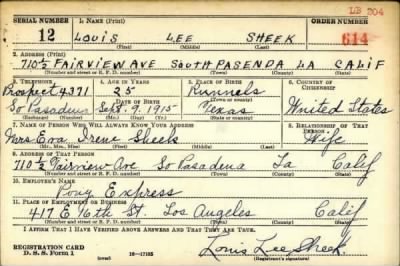 LB 304
SERIAL NUMBER 1. NAME (Print) ORDER NUMBER
12 LOUIS LEE SHEEK 614
(First) (Middle) (Last)
2. ADDRESS (Print)
710½ FAIRVIEW AVE SOUTH PASENDA LA CALIF
(Number and street or R. F. D. number) (Town) (County) (State)
3. TELEPHONE 4. AGE IN YEARS 5. PLACE OF BIRTH 6. COUNTRY OF CITIZENSHIP
Prospect 4371 25 Runnels
DATE OF BIRTH (Town or county)
So Pasadena Sept. 9. 1915 Texas United States
(Exchange) (Mo.) (Day) (Yr.) (State or country)
7. NAME OF PERSON WHO WILL ALWAYS KNOW YOUR ADDRESS 8. RELATIONSHIP OF THAT PERSON
Mrs Eva Irene Sheek Wife
(Mr., Mrs., Miss) (First) (Middle) (Last)
9. ADDRESS OF THAT PERSON
710½ Fairview Ave So Pasadena La Calif
(Number and street or R. F. D. number) (Town) (County) (State)
10. EMPLOYER'S NAME
Pony Express
11. PLACE OF EMPLOYMENT OR BUSINESS
417 E 16th St. Los Angeles Calif
(Number and street or R. F. D. number) (Town) (County) (State)
I AFFIRM THAT I HAVE VERIFIED ABOVE ANSWERS AND THAT THEY ARE TRUE.
REGISTRATION CARD
D. S. S. Form 1 16—17105 Louis Lee Sheek
(Registrant's signature)